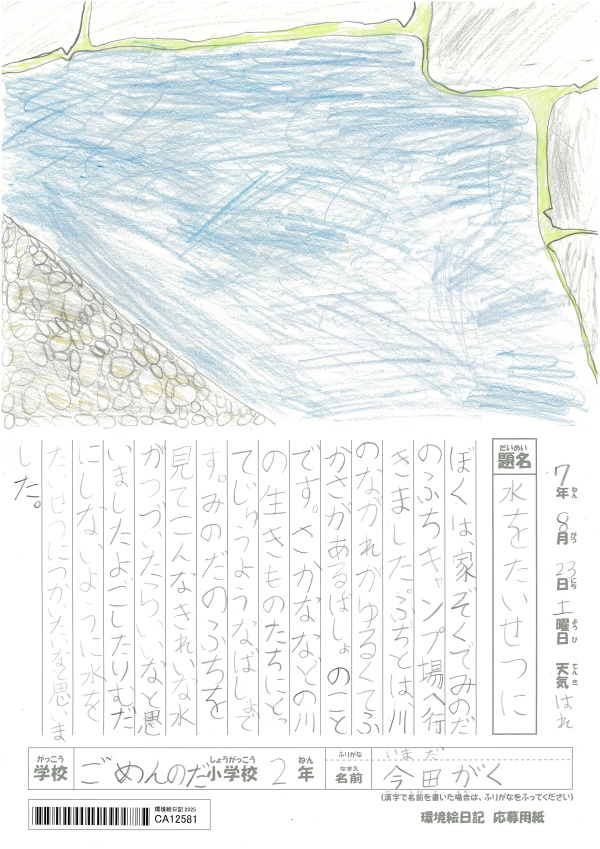 7年ねん 8月がつ 23日にち 土曜日ようび 天気てんき はれ
題名だいめい 水をたいせつに
ぼくは、家ぞくでみのだ
のふちキャンプ場へ行
きました。ふちとは、川
のながれがゆるくてふ
かさがあるばしょのこと
です。さかななどの川
の生きものたちにとっ
てじゅうようなばしょで
す。みのだのふちを
見てこんなきれいな水
がつづいたらいいなと思
いましたよごしたりむだ
にしないように水を
たいせつにつかいたいなと思いま
した。
学校がっこう ごめんのだ小学校しょうがっこう 2年ねん
ふりがな いまだ
名前なまえ 今田がく
(漢字で名前を書いた場合は、ふりがなをふってください)
環境絵日記 2025
CA12581
環境絵日記 応募用紙